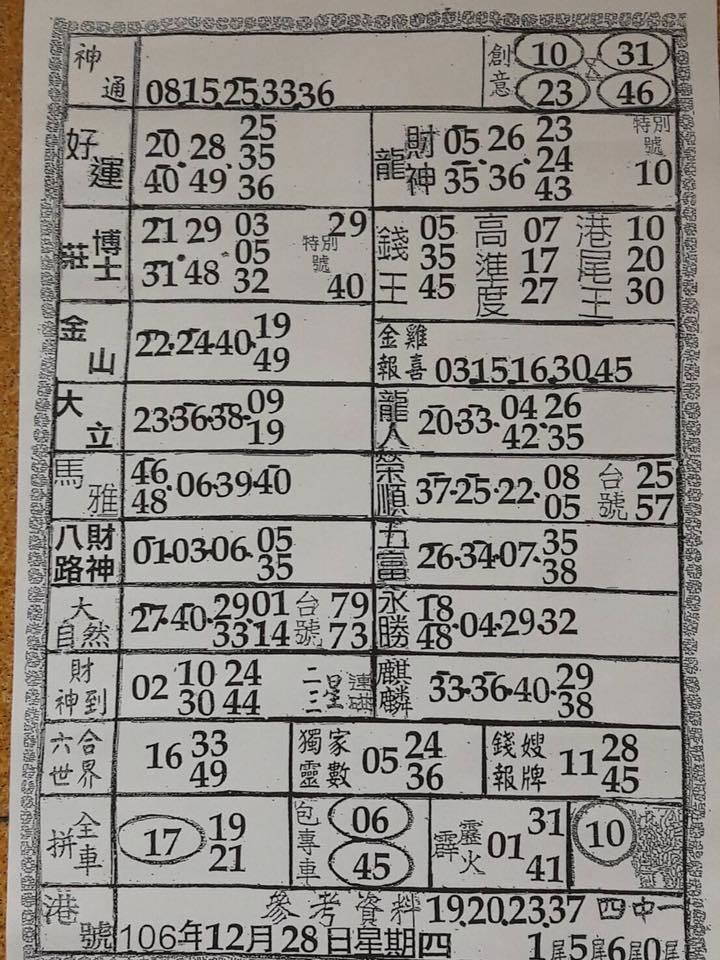 神通 08.15.25.33.36 創意 10 31 23 46
好運 20.28.25 35 40 49 36 龍財神 05.26.23 24 35 36 43 特別號 10
莊博士 21 29 03 05 31 48 32 特別號 29 40 錢王 05 35 45 高進度 07 17 27 港尾王 10 20 30
金山 22.24.40.19 49 金雞報喜 03.15.16.30.45
大立 23.36.38.09 19 龍人 20.33.04 26 42 35
馬雅 46 48.06.39.40 榮順 37.25.22.08 05 台號 25 57
八路財神 01.03.06.05 35 五富 26.34.07.35 38
大自然 27.40.29.01 33 14 台號 79 73 永勝 18 48.04.29.32
財神到 02 10 24 30 44 二三星連碰 麒麟 33.36.40.29 38
六合世界 16 33 49 獨家靈數 05 24 36 錢嫂報牌 11 28 45
全車拼 17 19 21 包專車 06 45 霹靂火 01 31 41 10
港號 參考資料 19.20.23.37 四中一
106年12月28日星期四 1尾5尾6尾0尾